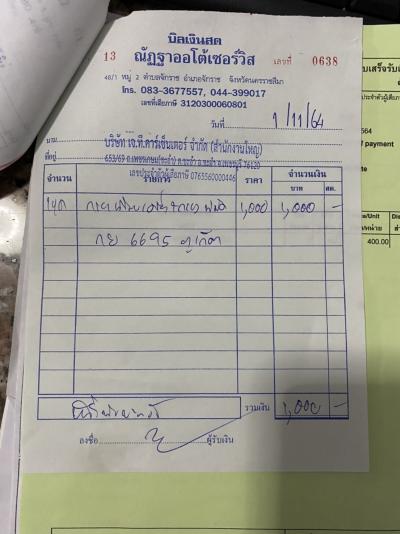 บิลเงินสด
13 ณัฏฐาออโต้เซอร์วิส เลขที่ 0638
48/1 หมู่ 2 ตำบลจักราช อำเภอจักราช จังหวัดนครราชสีมา
โทร. 083-3677557, 044-399017
เลขที่เสียภาษี 3120300060801
วันที่ 1/11/64
นาม บริษัท เจ.ที.คาร์เซ็นเตอร์ จำกัด (สำนักงานใหญ่)
ที่อยู่ 653/69 ถ.เพชรเกษม 76120
เลขประจำตัวผู้เสียภาษี 0765560000446
จำนวน รายการ ราคา จำนวนเงิน
บาท สต.
1ชุด 1,000 1,000 -
กย 6695 ภูเก็ต
รวมเงิน 1,000 -
ลงชื่อ ผู้รับเงิน
564
/ payment
te
e/Unit Dis
400.00